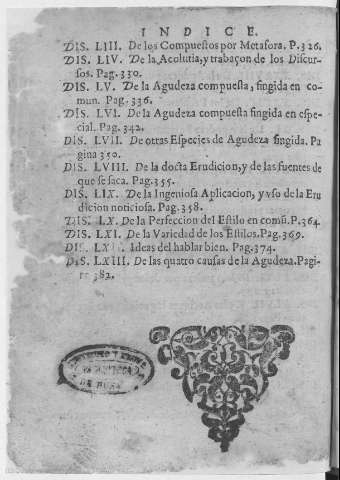 INDICE.
DIS. LIII. De los Compuestos por Metafora. P.326.
DIS. LIV. De la Acolutia, y trabaçon de los Discur-
sos. Pag. 330.
DIS. LV. De la Agudeza compuesta, fingida en co-
mun. Pag. 336.
DIS. LVI. De la Agudeza compuesta fingida en espe-
cial. Pag. 342.
DIS. LVII. De otras Especies de Agudeza fingida. Pa
gina 350.
DIS. LVIII. De la docta Erudicion, y de las fuentes de
que se saca. Pag. 355.
DIS. LIX. De la Ingeniosa Aplicacion, y vso de la Eru
dicion noticiosa. Pag. 358.
DIS. LX. De la Perfeccion del Estilo en comũ. P.364.
DIS. LXI. De la Variedad de los Estilos. Pag. 369.
DIS. LXII. Ideas del hablar bien. Pag. 374.
DIS. LXIII. De las quatro causas de la Agudeza. Pagi-
382.